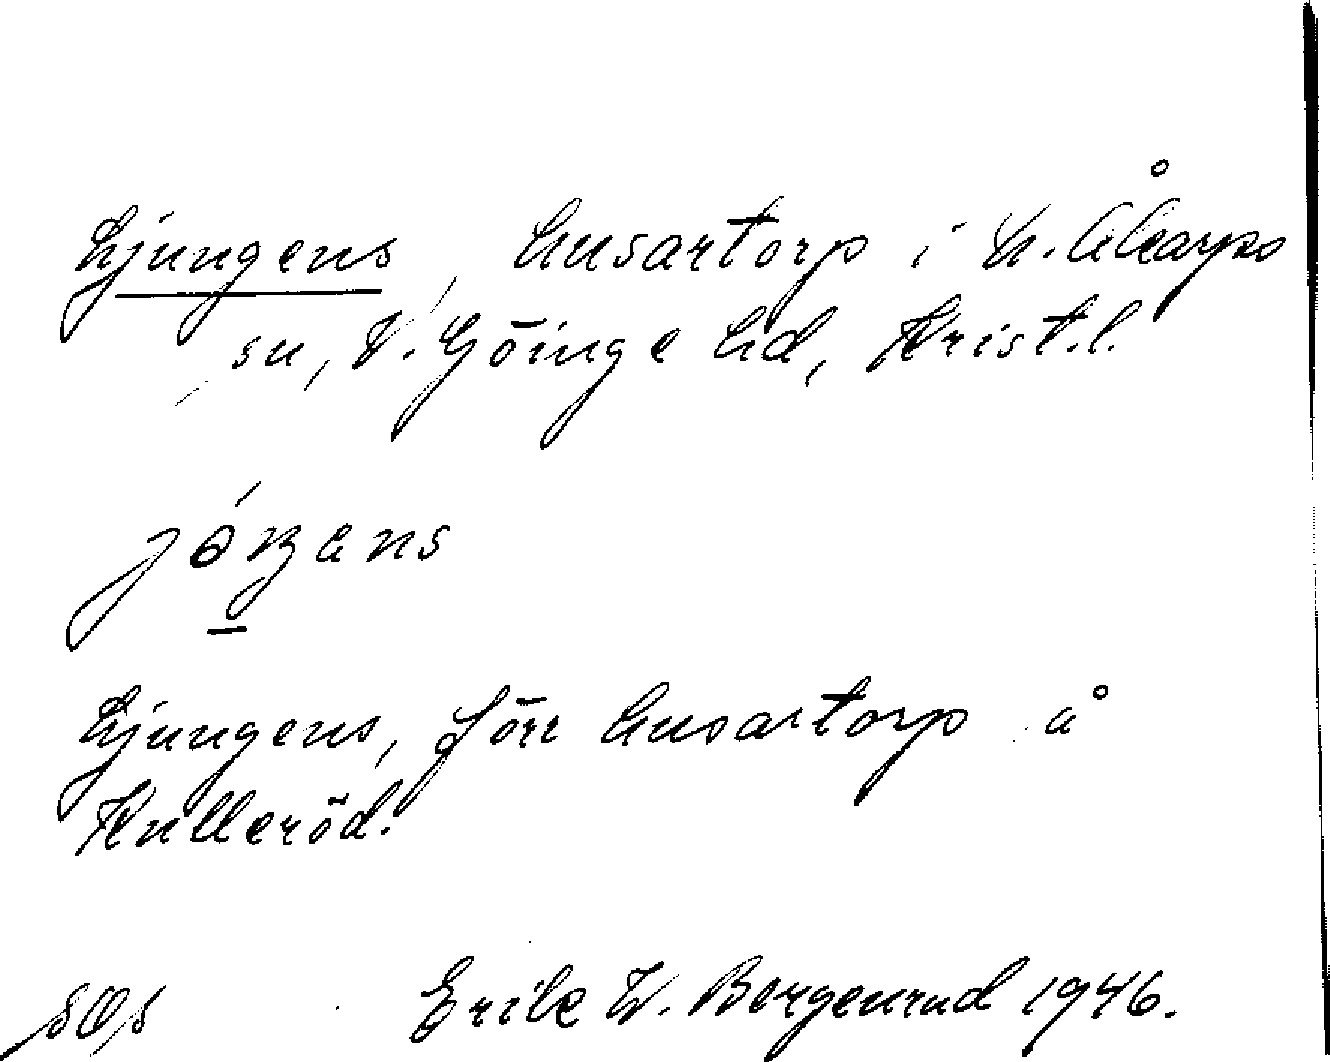 Ljungens, husartorp i N. Åkarps
sn, V. Göinge hd, Krist.l.
Ljungens, förr husartorp å
Hulleröd.
Erik W. Borgenrud 1946.